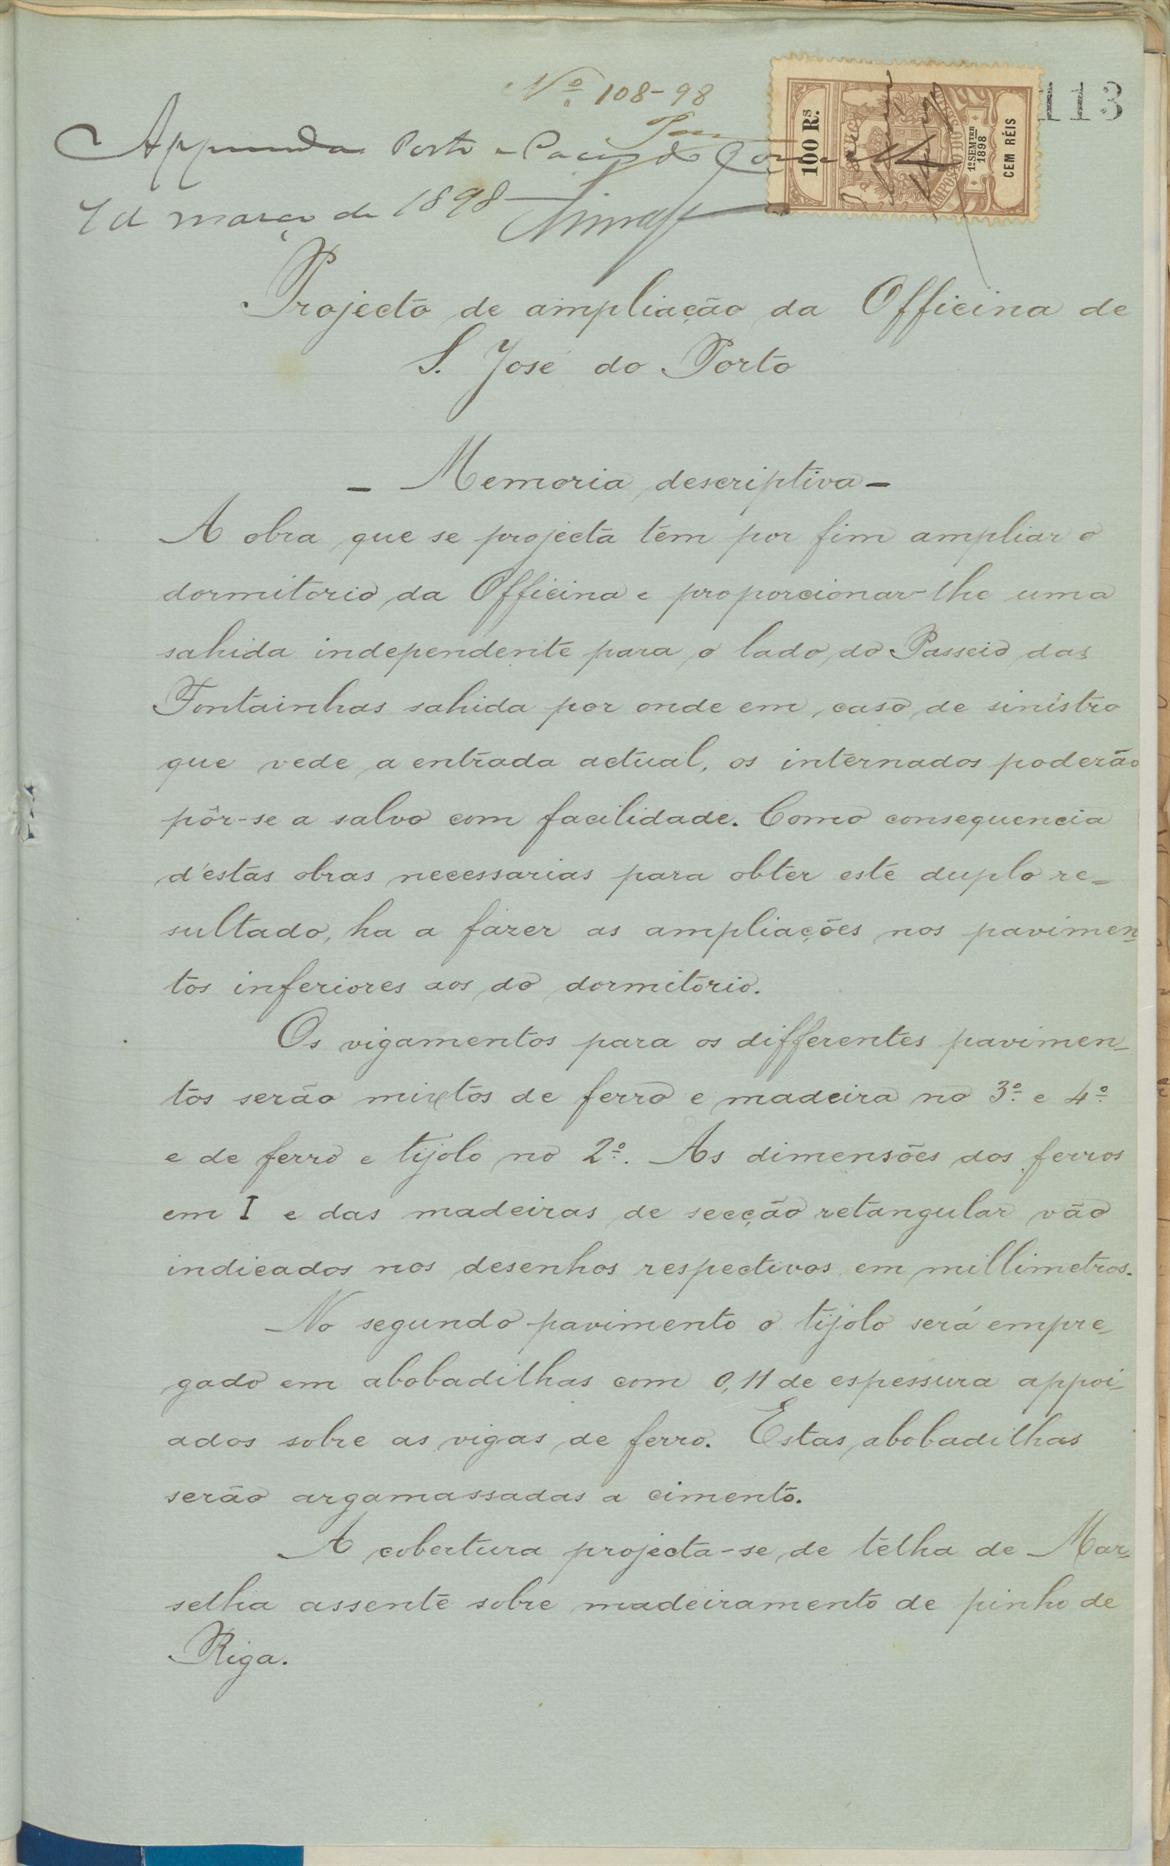 Nº 108-98
113
100 Rs.
IMPOSTO DO SELLO
1º SEMTRE
1898
CEM RÉIS
Approvada Porto e Paços do Concelho
7 de março de 1898
Projecto de ampliação da Officina de
S. José do Porto
- Memoria descriptiva -
A obra que se projecta tem por fim ampliar o
dormitorio da Officina e proporcionar-lhe uma
sahida independente para o lado do Passeio das
Fontainhas sahida por onde em caso de sinistro
que vede a entrada actual, os internados poderão
pôr-se a salvo com facilidade. Como consequencia
d'estas obras necessarias para obter este duplo re-
sultado, ha a fazer as ampliações nos pavimen-
tos inferiores aos do dormitorio.
Os vigamentos para os differentes pavimen-
tos serão mixtos de ferro e madeira no 3º e 4º
e de ferro e tijolo no 2º. As dimensões dos ferros
em I e das madeiras de secção retangular vão
indicados nos desenhos respectivos em millimetros.
No segundo pavimento o tijolo será empre-
gado em abobadilhas com 0,11 de espessura appoi-
ados sobre as vigas de ferro. Estas abobadilhas
serão argamassadas a cimento.
A cobertura projecta-se de telha de Mar-
selha assente sobre madeiramento de pinho de
Riga.